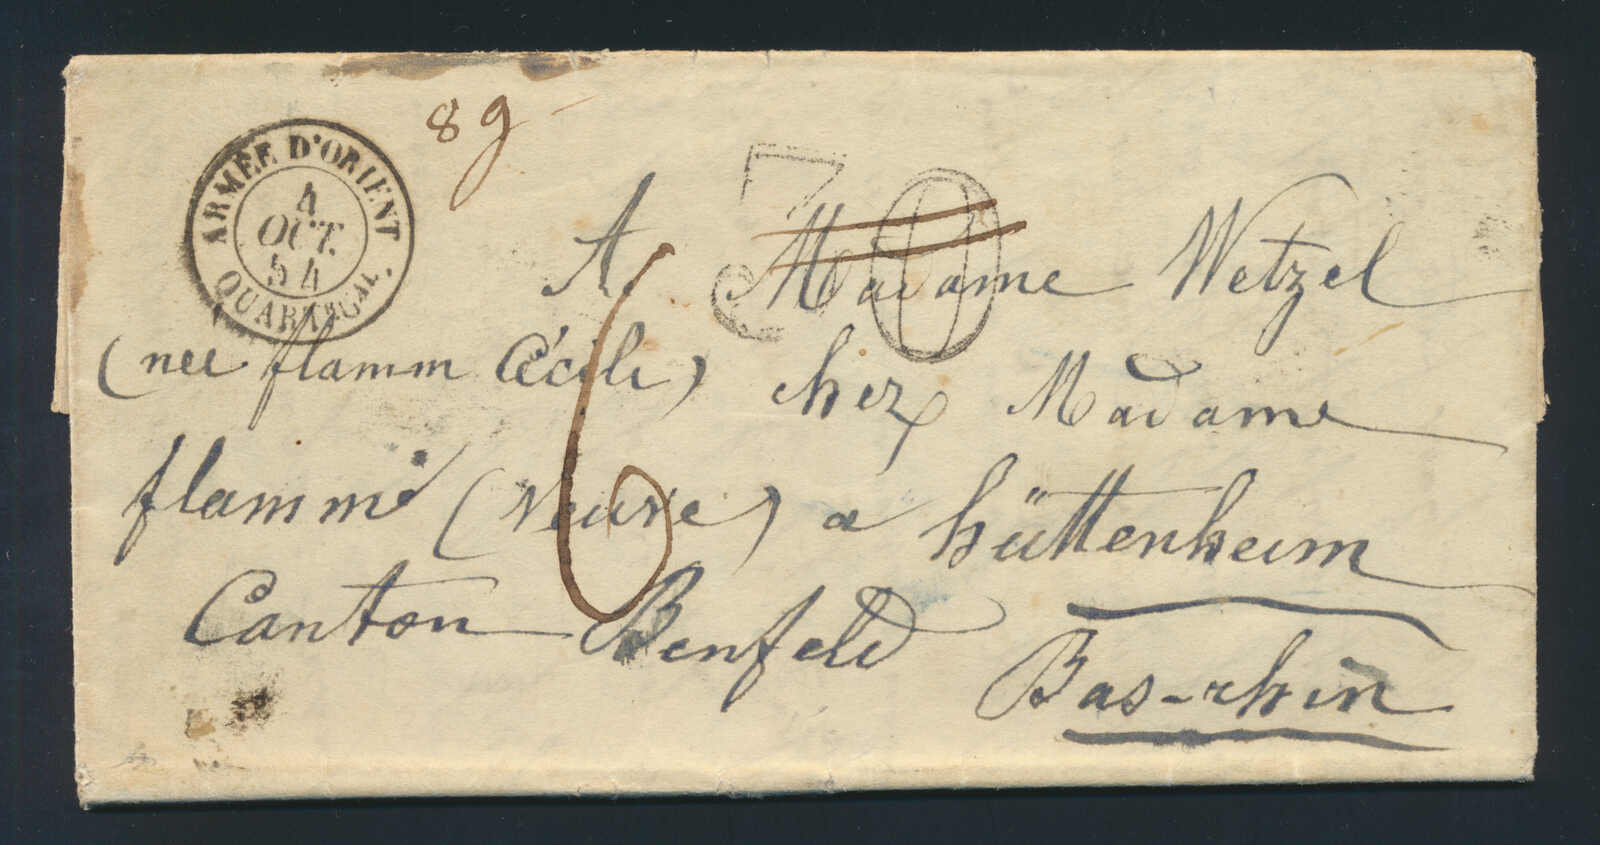 ARMÉE D'ORIENT
4
OCT.
54
QUARt. GAL.
8 g
30
6
A Madame Wetzel
(neé flamm Cécile) chez Madame
flamm (veuve) a hüttenheim
Canton Benfeld
Bas-rhin